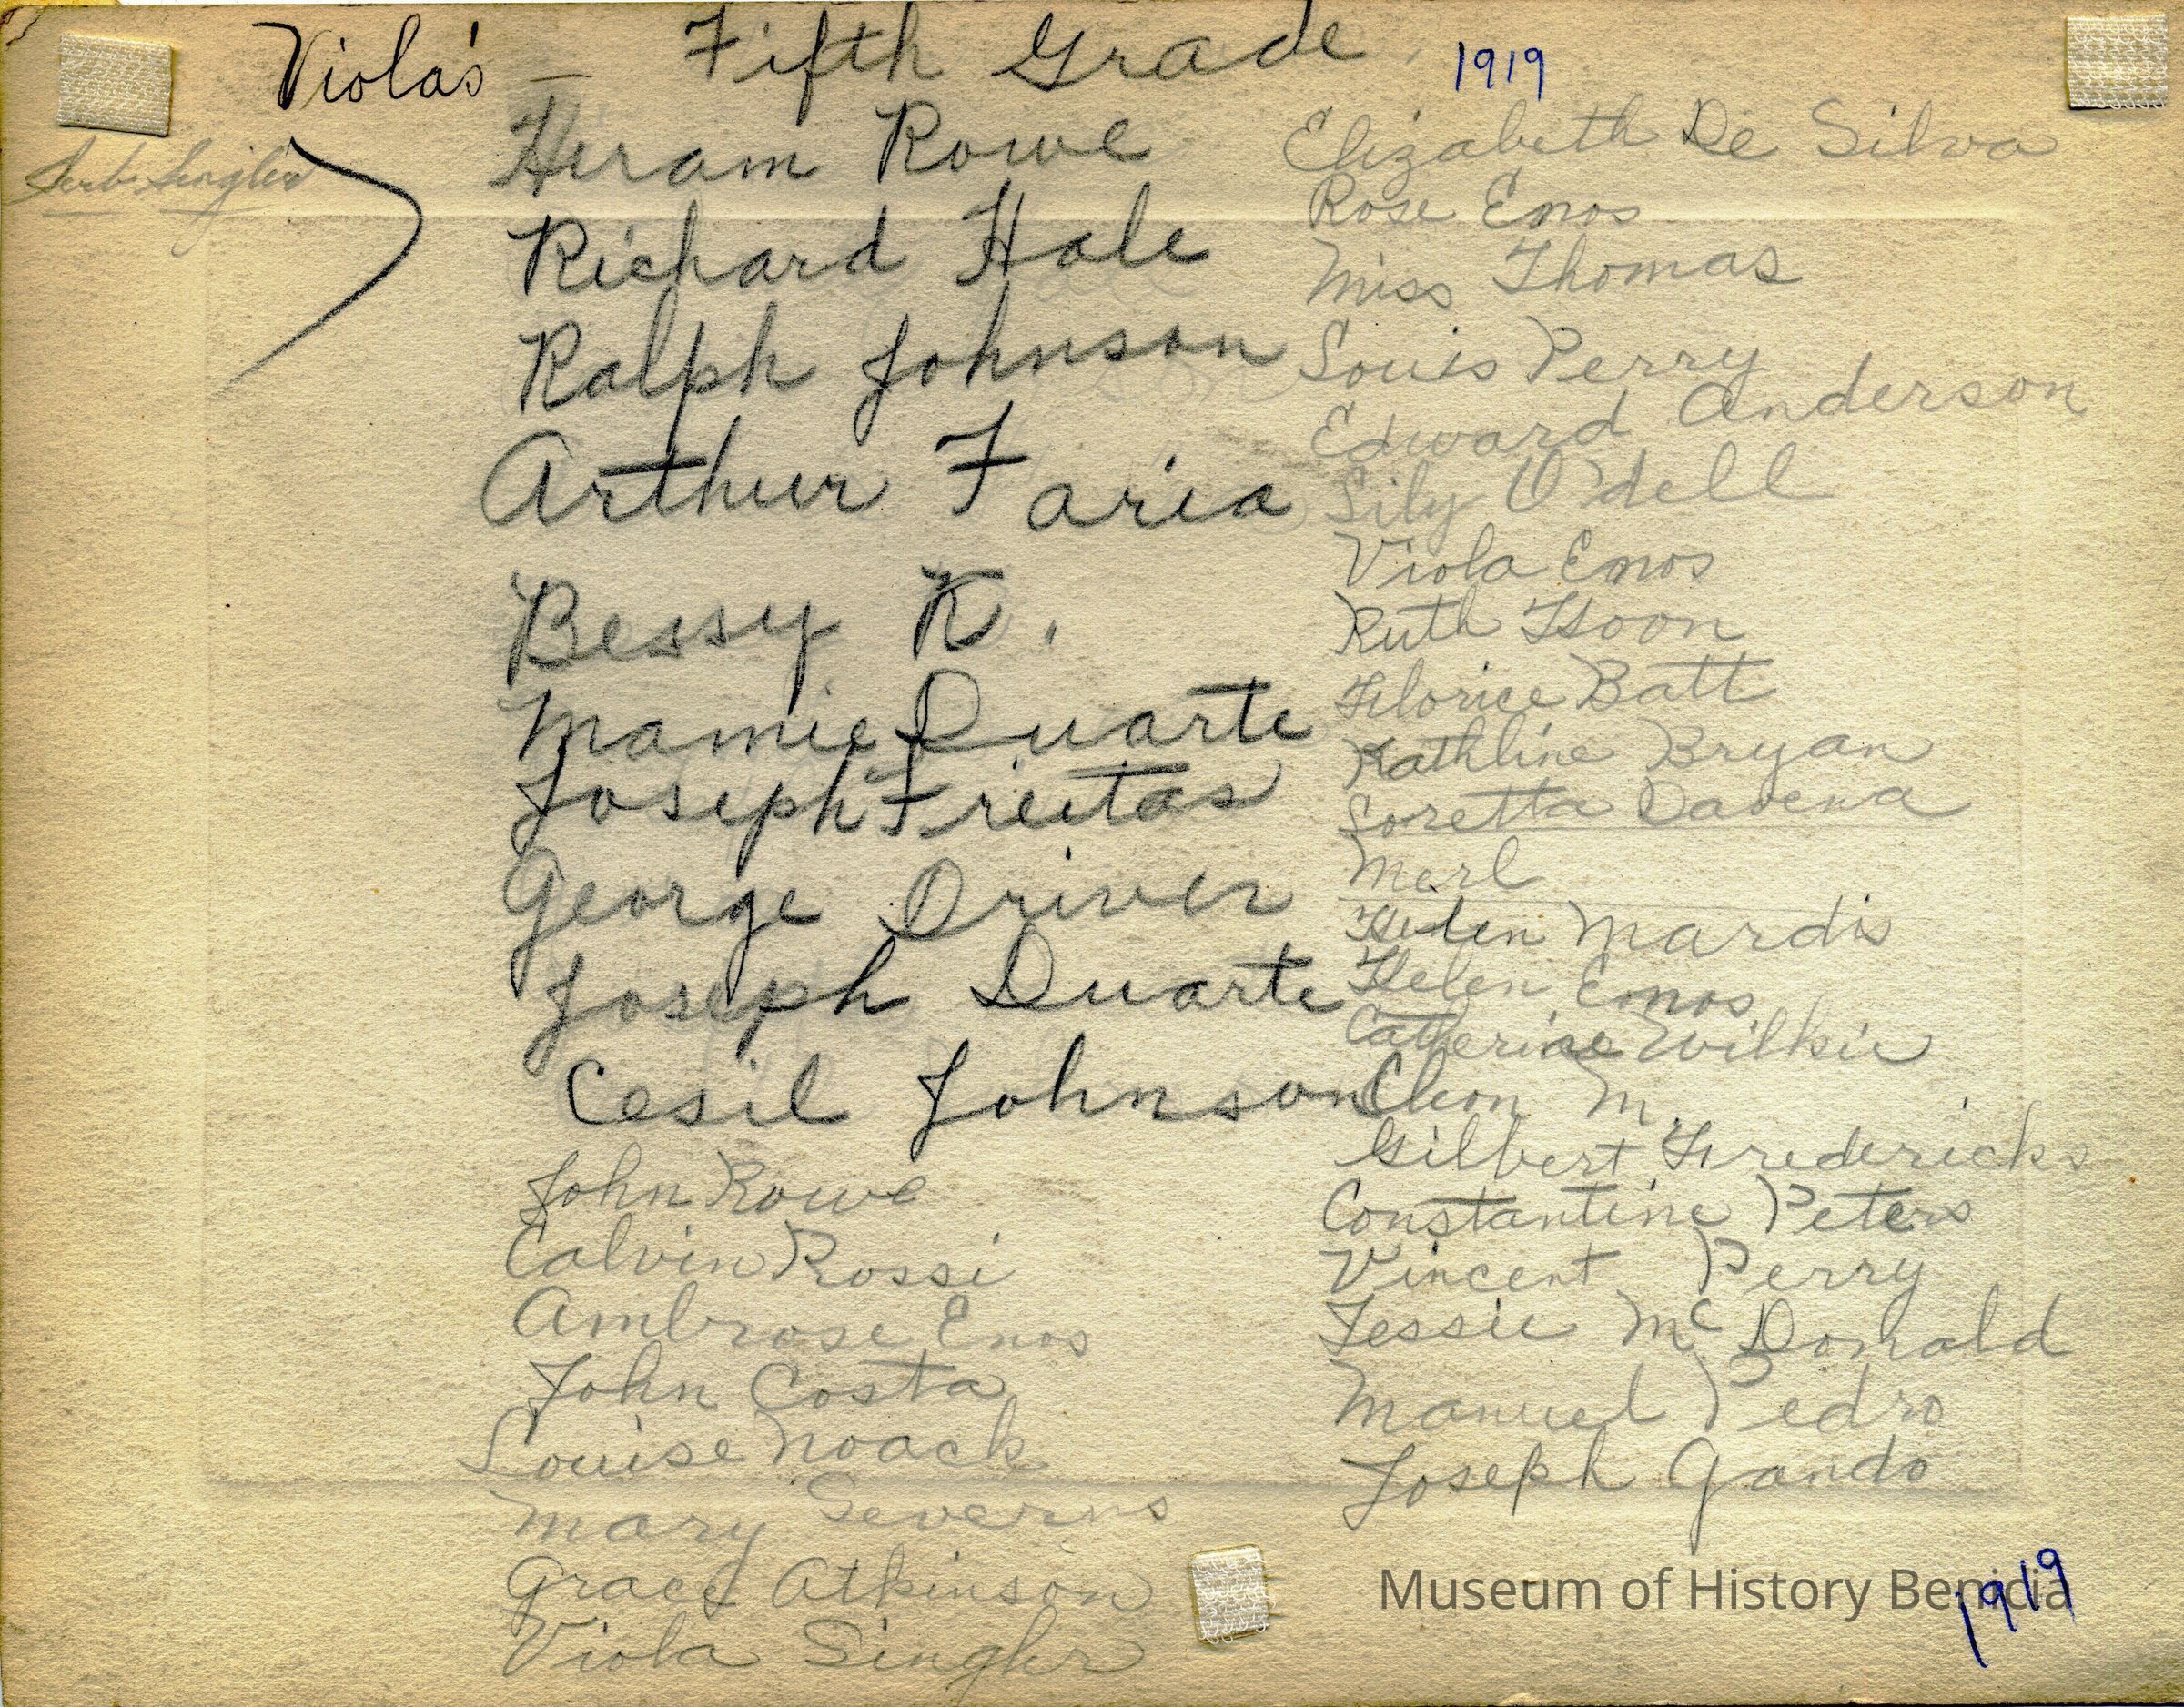 Viola's - Fifth Grade 1919
Herb Singler
Hiram Rowe
Richard Hale
Ralph Johnson
Arthur Faria
Bessy K.
Mamie Duarte
Joseph Freitas
George Driver
Joseph Duarte
Cesil Johnson
John Rowe
Calvin Rossi
Ambrose Enos
John Costa
Louise Noack
Mary Severns
Grace Atkinson
Viola Singler
Elizabeth De Silva
Rose Enos
Miss Thomas
Louis Perry
Edward Anderson
Lily O'dell
Viola Enos
Ruth Hoon
Florice Batt
Kathline Bryan
Loretta Davena
Merl
Helen Mardis
Helen Enos
Catherine Wilkie
Cleon M.
Gilbert Fredericks
Constantine Peters
Vincent Perry
Jessie McDonald
Manuel Pedro
Joseph Gando
Museum of History Benicia
1919